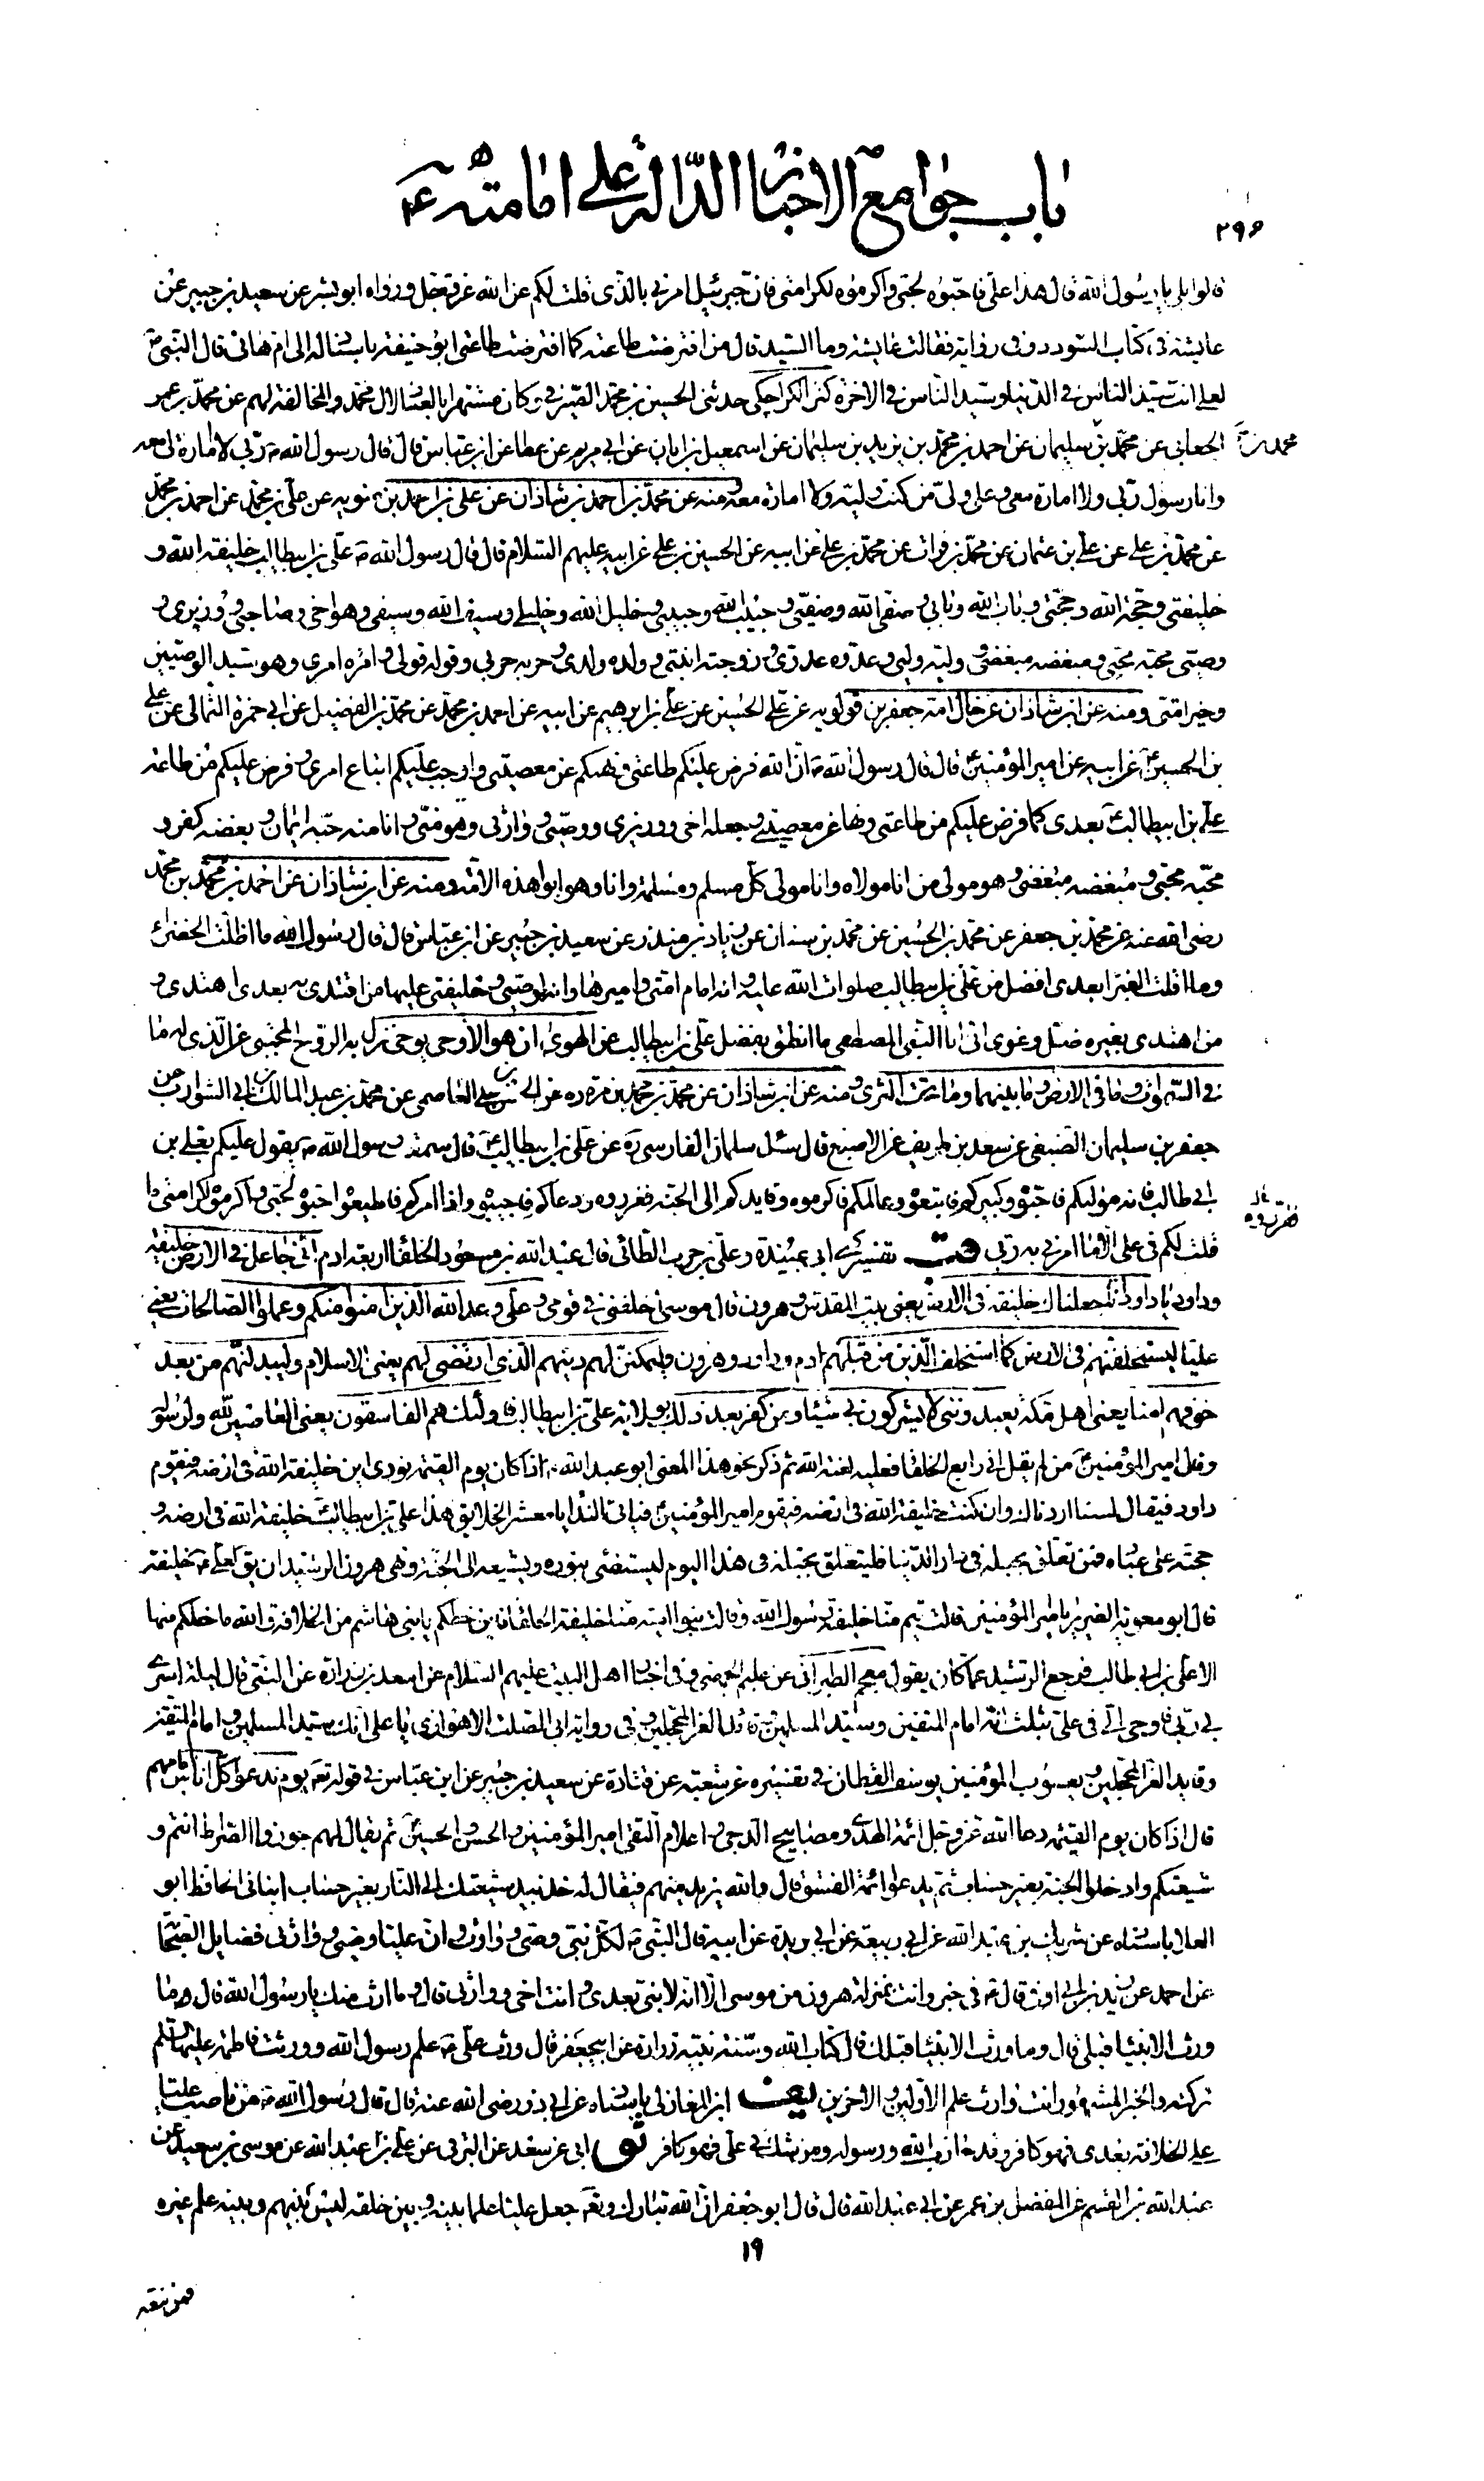 باب جوامع الاخبار الدالة على امامته ع
٢٩٦
قالوا بلى يا رسول الله قال هذا على فاحبوه بحبى واكرموه لكرامتى فان جبرئيل امرنى بالذى قلت لكم عن الله عز وجل ورواه ابو بشر عن سعيد بن جبير عن
عايشة فى كتاب السودد وفى رواية فقالت عايشة وما السيد قال من افترضت طاعته كما افترضت طاعتى ابو حنيفة باسناده الى ام هانى قال النبى ص
لعلى انت سيد الناس فى الدنيا وسيد الناس فى الاخرة كنز الكراجكى حدثنى الحسين بن محمد الصيرفى وكان مشتهرا بالعناد لال محمد والمخالفة لهم عن محمد بن عمر
الجعابى عن محمد بن سليمان عن احمد بن محمد بن يزيد بن سليمان عن اسمعيل بن ابان عن ابى مريم عن عطا عن ابن عباس قال قال رسول الله ص ربى لا امارة لى معه
وانا رسول ربى ولا امارة معى وعلى ولى من كنت وليه ولا امارة معه ومنه عن محمد بن احمد بن شاذان عن على بن احمد بن متويه عن على بن محمد عن احمد بن محمد
عن محمد بن على عن على بن عثمان عن محمد بن فرات عن محمد بن على عن ابيه عن الحسين بن على عن ابيه عليهم السلام قال قال رسول الله ص على بن ابيطالب خليفة الله و
خليفتى وحجة الله وحجتى وباب الله وبابى وصفى الله وصفيى وحبيب الله وحبيبى وخليل الله وخليلى وسيف الله وسيفى وهو اخى وصاحبى ووزيرى و
وصيى محبه محبى ومبغضه مبغضى ووليه وليى وعدوه عدوى وزوجته ابنتى وولده ولدى وحربه حربى وقوله قولى وامره امرى وهو سيد الوصيين
وخير امتى ومنه عن ابن شاذان عن خال امه جعفر بن قولويه عن على الحسين عن على بن ابرهيم عن ابيه عن احمد بن محمد عن محمد بن الفضيل عن ابى حمزة الثمالى عن على
بن الحسين ع عن ابيه عن امير المؤمنين ع قال قال رسول الله ص ان الله فرض عليكم طاعتى ونهيكم عن معصيتى واوجب عليكم اتباع امرى وفرض عليكم من طاعة
على بن ابيطالب ع بعدى كما فرض عليكم من طاعتى ونهاكم عن معصيته وجعله اخى ووزيرى ووصيى ووارثى وهو منى وانا منه حبه ايمان وبغضه كفر و
محبه محبى ومبغضه مبغضى وهو مولى من انا مولاه وانا مولى كل مسلم ومسلمة وانا وهو ابوا هذه الامة ومنه عن ابن شاذان عن احمد بن محمد بن محمد
رضى الله عنه عن محمد بن جعفر عن محمد بن الحسين عن محمد بن سنان عن زياد بن منذر عن سعيد بن جبير عن ابن عباس قال قال رسول الله ما اظلت الخضراء
وما اقلت الغبرا بعدى افضل من على بن ابيطالب صلوات الله عليه وانه امام امتى واميرها وانه لوصيى وخليفتى عليها من اقتدى به بعدى اهتدى و
من اهتدى بغيره ضل وغوى انى انا النبى المصطفى ما انطق بفضل على بن ابيطالب عن الهوى ان هو الا وحى يوحى نزل به الروح المجتبى عن الذى له ما
فى السموات وما فى الارض وما بينهما وما تحت الثرى ومنه عن ابن شاذان عن محمد بن محمد بن مرة ره عن الحسن بن على العاصمى عن محمد بن عبد المالك بن ابى الشوارب عن
جعفر بن سليمان الضبعى عن سعد بن طريف عن الاصبغ قال سئل سلمان الفارسى ره عن على بن ابيطالب ع قال سمعت رسول الله ص يقول عليكم بعلى بن
ابى طالب فانه موليكم فاحبوه وكبيركم فاتبعوه وعالمكم فاكرموه وقايدكم الى الجنة فعززوه ودعاكم فاجيبوه واذا امركم فاطيعوا احبوه لحبى واكرموه لكرامتى ما
قلت لكم فى على الا ما امرنى به ربى قب تفسيرى ابى عبيدة وعلى بن حرب الطائى قال عبد الله بن مسعود الخلفا اربعة ادم انى جاعل فى الارض خليفة
وداود يا داود انا جعلناك خليفة فى الارض يعنى بيت المقدس وهرون قال موسى اخلفنى فى قومى وعلى وعد الله الذين امنوا منكم وعملوا الصالحات يعنى
عليا ليستخلفنهم فى الارض كما استخلف الذين من قبلهم ادم وداود وهرون وليمكنن لهم دينهم الذى ارتضى لهم يعنى الاسلام وليبدلنهم من بعد
خوفهم امنا يعنى اهل مكة يعبدوننى لا يشركون بى شيئا ومن كفر بعد ذلك بولاية على بن ابيطالب فاولئك هم الفاسقون يعنى العاصين لله ولرسوله
وقال امير المؤمنين ع من لم يقل انى رابع الخلفا فعليه لعنة الله ثم ذكر نحو هذا المعنى ابو عبد الله ع اذا كان يوم القيمة نودى اين خليفة الله فى ارضه فيقوم
داود فيقال لسنا اردناك وان كنت خليفة الله فى ارضه فيقوم امير المؤمنين ع فياتى الندا يا معشر الخلايق هذا على بن ابيطالب ع خليفة الله فى ارضه و
حجته على عباده فمن تعلق بحبله فى دار الدنيا فليتعلق بحبله فى هذا اليوم ليستضئ بنوره ويشيعه الى الجنة ونهى هرون الرشيد ان يق لعلى ع خليفة
قال ابو معوية الضرير يا امير المؤمنين قالت تيم منا خليفة رسول الله وقالت بنو امية منا خليفة الخلفا فاين حظكم يا بنى هاشم من الخلافة والله ما حظكم منها
الا على بن ابى طالب فرجع الرشيد عما كان يقول معجم الطبرانى عن عليم الجهنى وفى اخبار اهل البيت عليهم السلام عن اسعد بن زرارة عن النبى قال ليلة اسرى
بى ربى فاوحى الى فى على بثلث انه امام المتقين وسيد المسلمين وقائد الغر المحجلين وفى رواية ابى الصلت الاهوازى يا على انك سيد المسلمين وامام المتقين
وقايد الغر المحجلين ويعسوب المؤمنين يوسف القطان فى تفسيره عن شعبة عن قتادة عن سعيد بن جبير عن ابن عباس فى قوله تع يوم ندعوا كل اناس بامامهم
قال اذا كان يوم القيمة دعا الله عز وجل ائمة الهدى ومصابيح الدجى واعلام التقى امير المؤمنين والحسن والحسين ع ثم يقال لهم جوزوا الصراط انتم و
شيعتكم وادخلوا الجنة بغير حساب ثم يدعو ائمة الفسق قال والله يزيد منهم فيقال له خذ بيد شيعتك الى النار بغير حساب انبانى الحافظ ابو
العلا باسناده عن شريك بن عبد الله عن ابى ربيعة عن ابى بريدة عن ابيه قال النبى ص لكل نبى وصى ووارث وان عليا وصيى ووارثى فضايل الصحابة
عن احمد عن زيد بن ابى اوفى قال ص فى خبر وانت بمنزلة هرون من موسى الا انه لا نبى بعدى وانت اخى ووارثى قال وما ارث منك يا رسول الله قال ص ما
ورث الانبيا قبلى قال وما ورث الانبيا قبلك قال كتاب الله وسنة نبيه زرارة عن ابيجعفر قال ورث على ع علم رسول الله وورثت فاطمة عليها السلم
تركته والخبر المشهور انت وارث علم الاولين والاخرين يف ابن المغازلى باسناده عن ابى ذر رضى الله عنه قال قال رسول الله ص من ناصب عليا
على الخلافة بعدى فهو كافر وقد حارب الله ورسوله ومن شك فى على فهو كافر ثو ابى عن سعد عن البرقى عن على بن عبد الله عن موسى بن سعيد عن
عبد الله بن القسم عن المفضل بن عمر عن ابى عبد الله قال قال ابو جعفر ان الله تبارك وتع جعل عليا علما بينه وبين خلقه ليس بينهم وبينه علم غيره
١٩
فمن تبعه